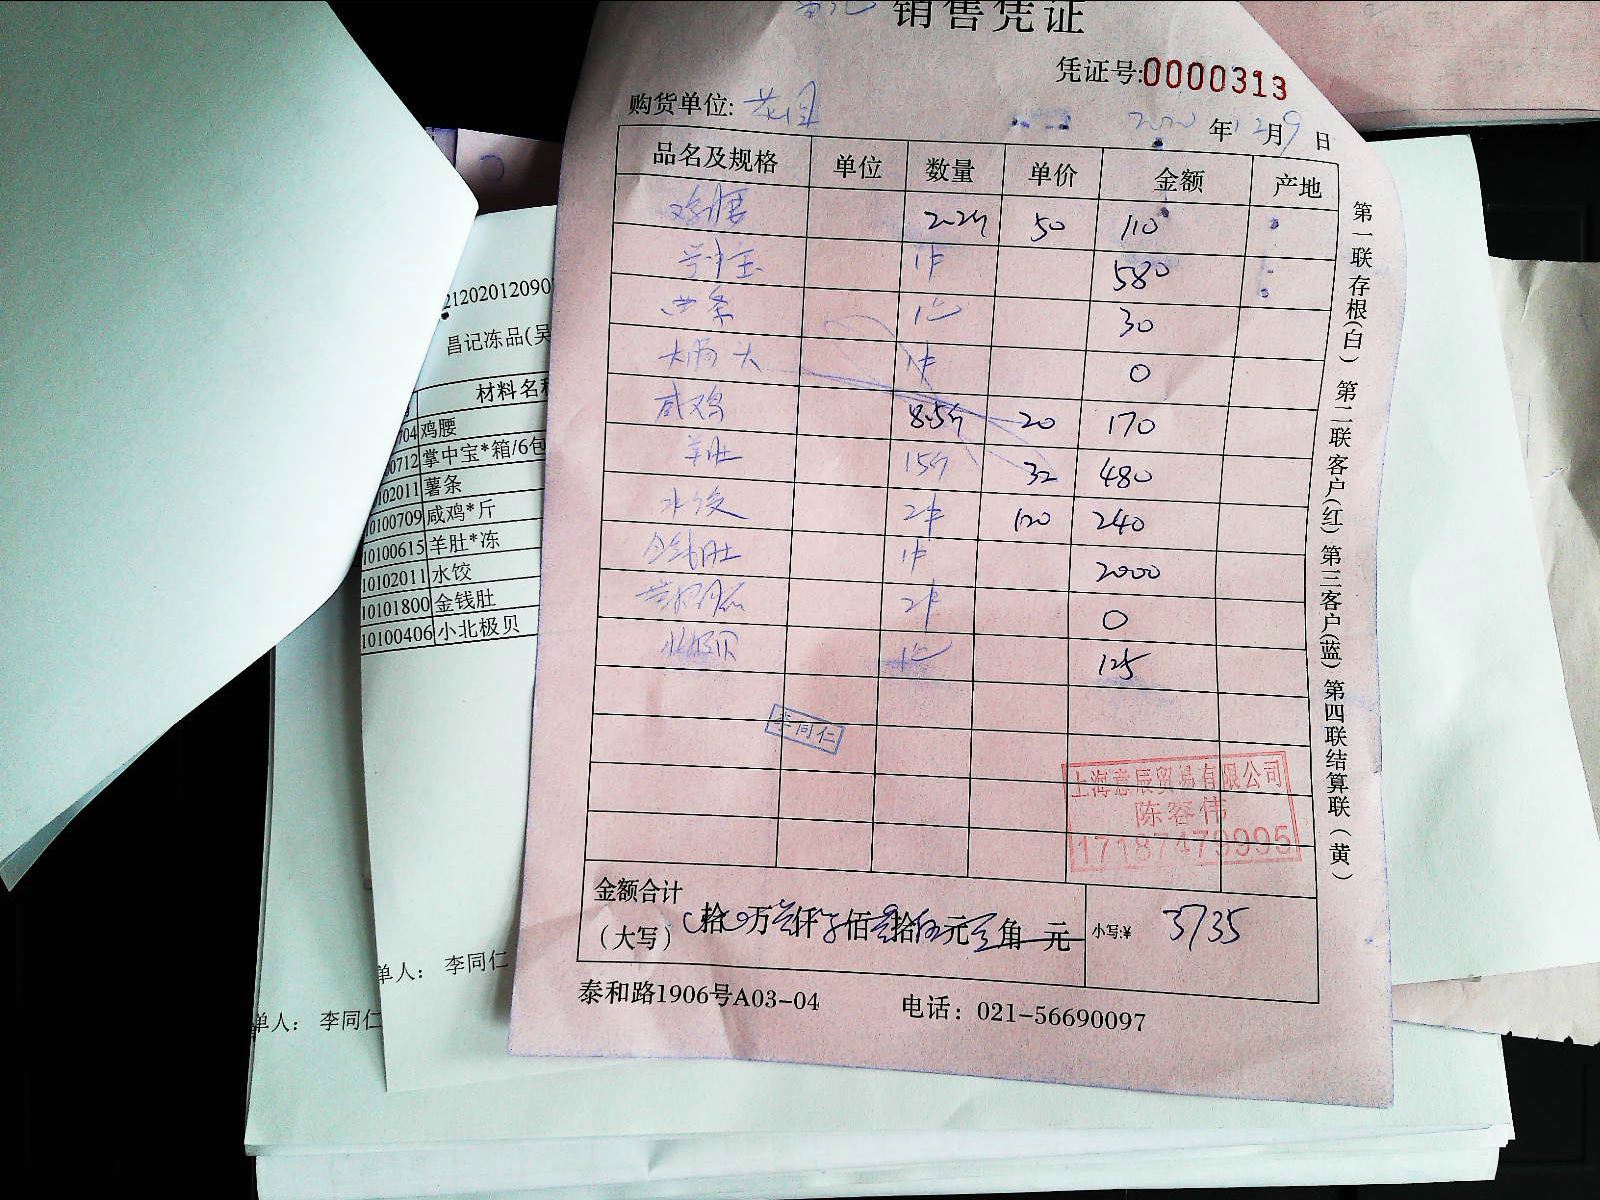 销售凭证
凭证号:0000313
购货单位:
2020年12月9日
品名及规格 单位 数量 单价 金额 产地
鸡腰 2.2斤 50 110
掌中宝 1件 580
薯条 1包 30
1件 0
咸鸡 8.5斤 20 170
羊肚 15斤 32 480
水饺 2件 120 240
金钱肚 1件 2000
2件 0
北极贝 1包 125
李同仁
上海意辰贸易有限公司
陈容伟
17187479995
金额合计
(大写) 拾 万叁仟柒佰叁拾伍元 角 元 小写:¥ 3735
泰和路1906号A03-04 电话: 021-56690097
第一联存根(白) 第二联客户(红) 第三客户(蓝) 第四联结算联(黄)
21202012090
昌记冻品(吴
材料名称
704 鸡腰
0712 掌中宝*箱/6包
102011 薯条
10100709 咸鸡*斤
10100615 羊肚*冻
10102011 水饺
10101800 金钱肚
10100406 小北极贝
单人: 李同仁
单人: 李同仁